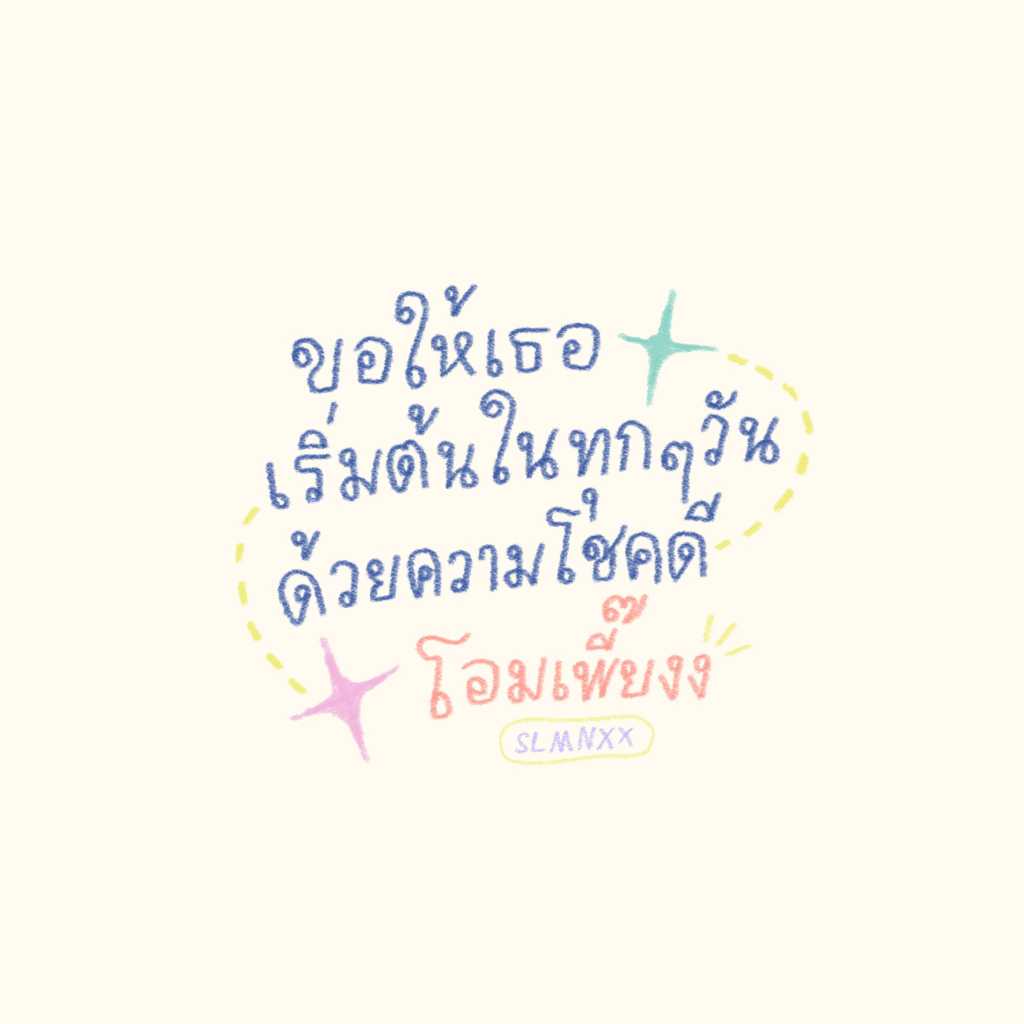 ขอให้เธอ
เริ่มต้นในทุกๆวัน
ด้วยความโชคดี
โอมเพี๊ยงง
SLMNXX